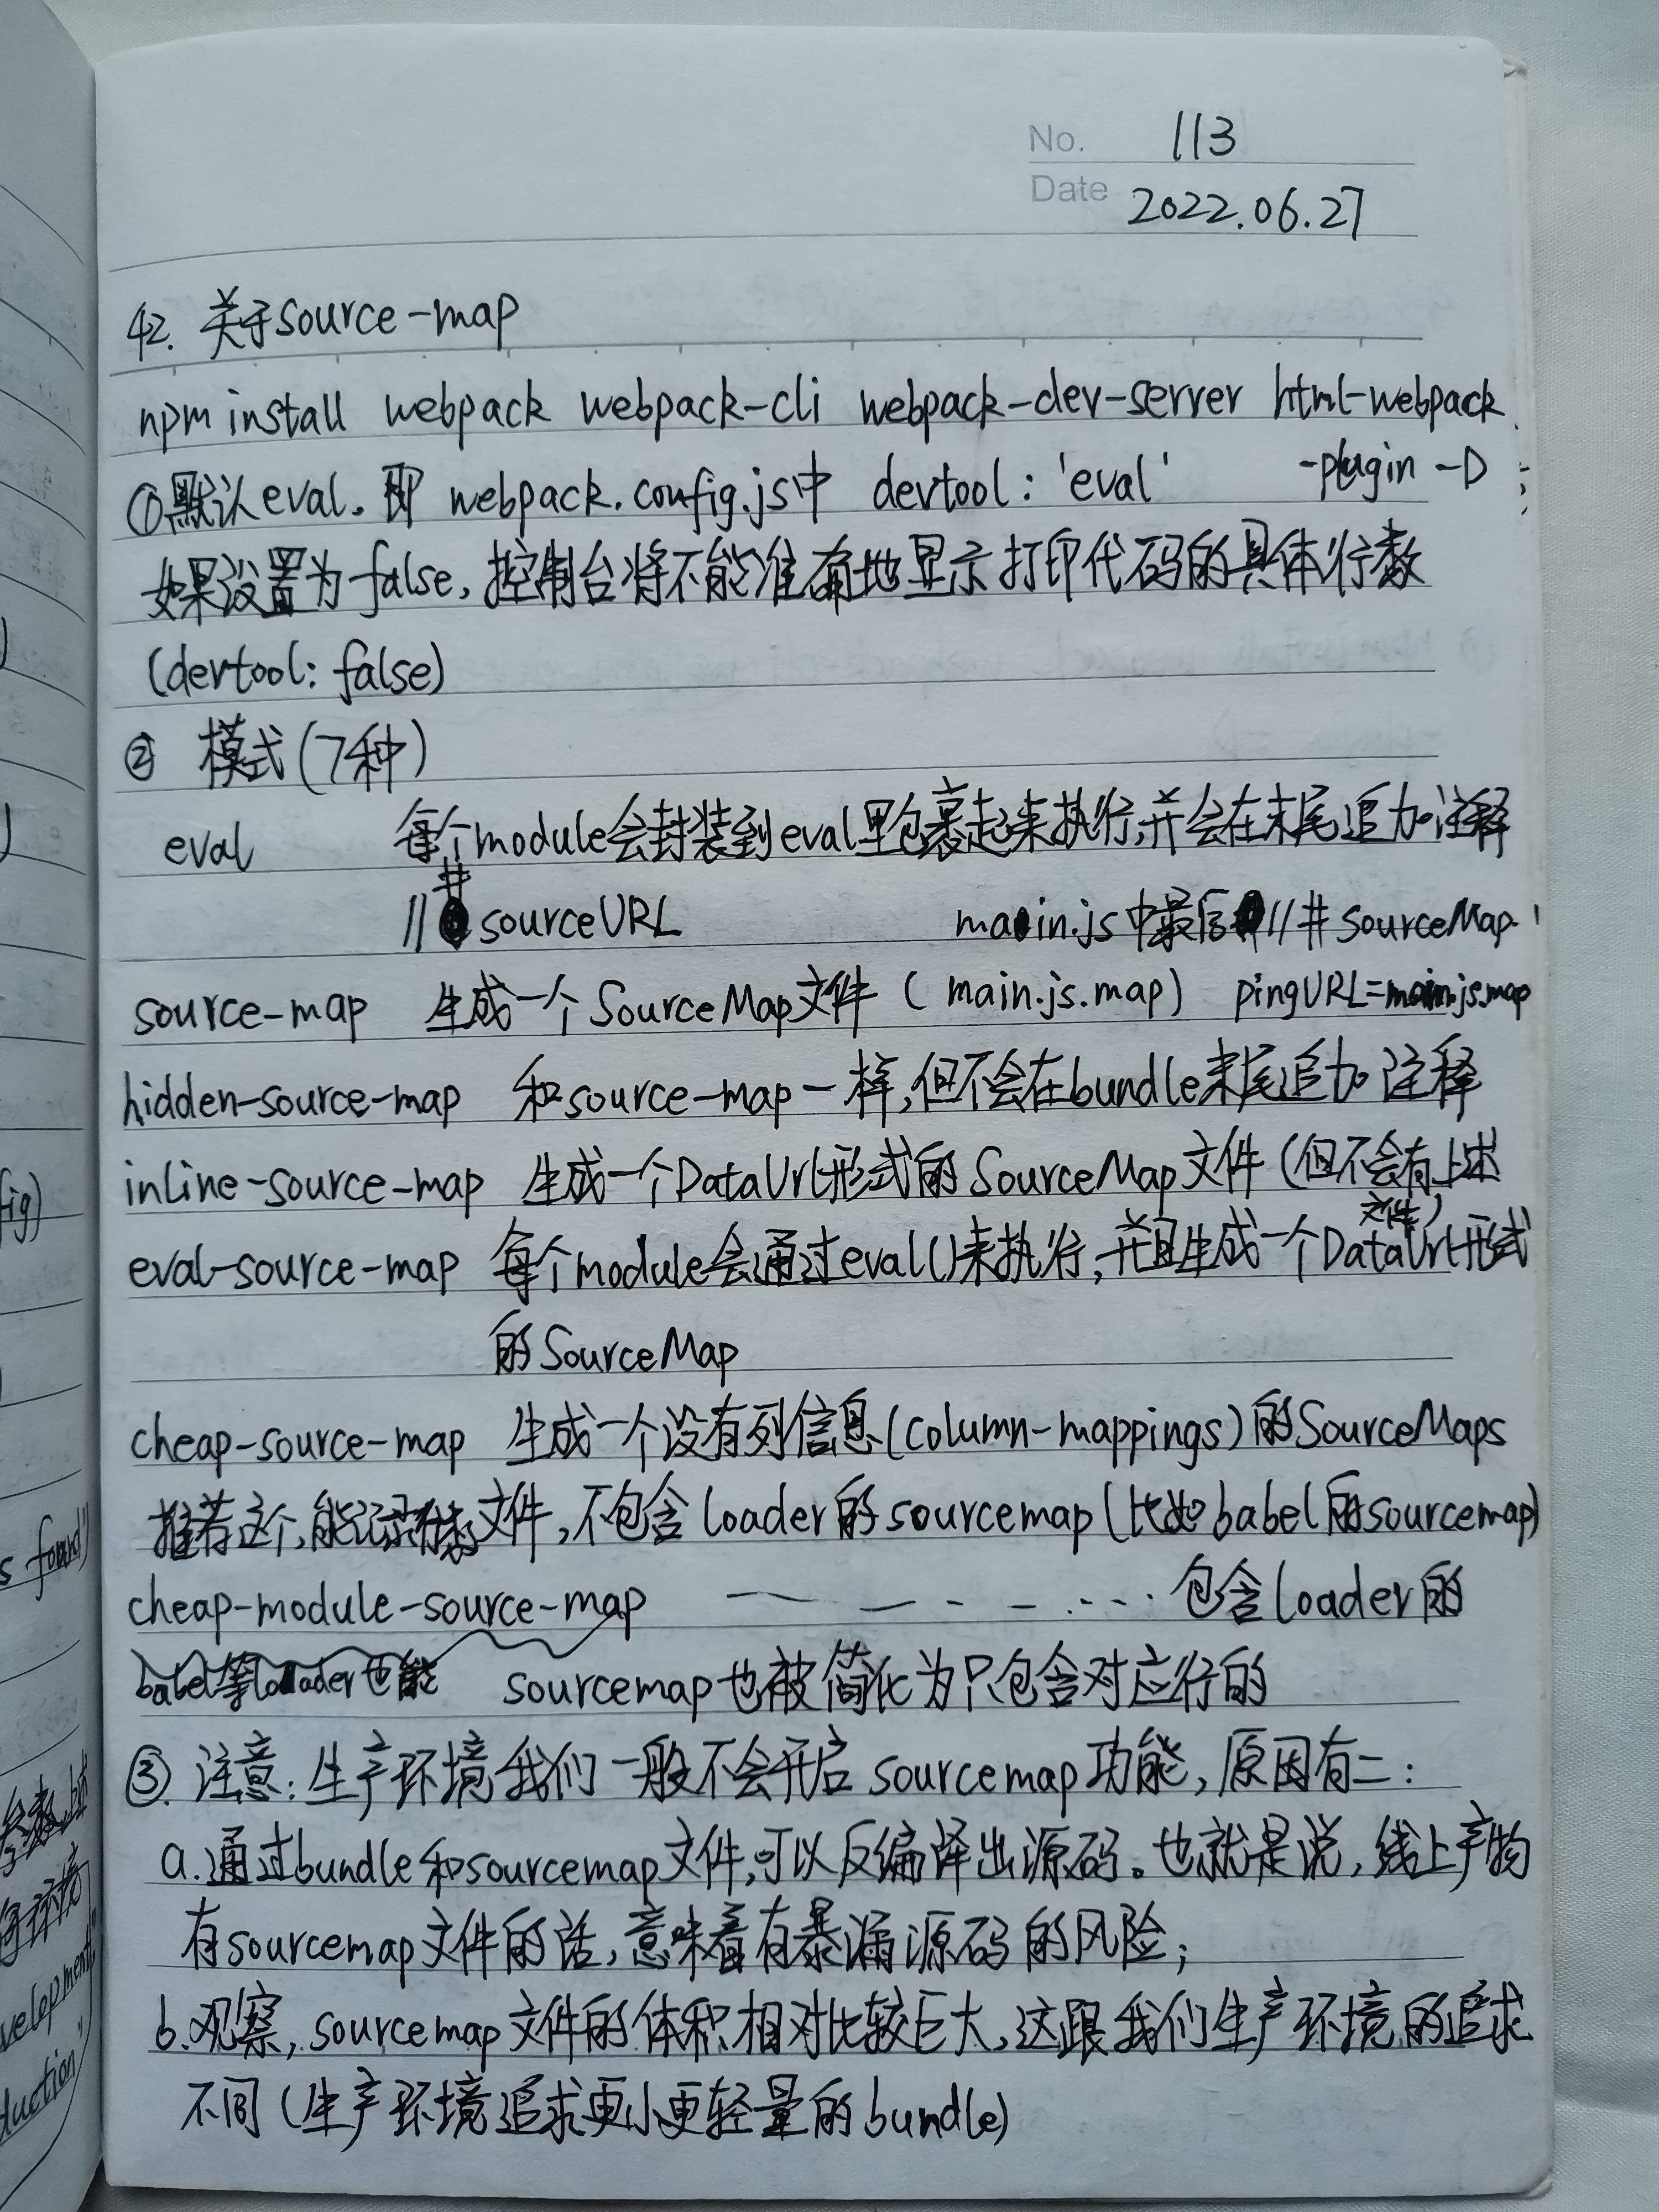 No. 113
Date 2022.06.27
42. 关于source-map
npm install webpack webpack-cli webpack-dev-server html-webpack
-plugin -D
①默认eval。即 webpack.config.js中 devtool: 'eval'
如果设置为false,控制台将不能准确地显示打印代码的具体行数
(devtool: false)
② 模式(7种)
eval 每个module会封装到eval里包裹起来执行,并会在末尾追加注释
//# sourceURL main.js中最后//# sourceMap
source-map 生成一个SourceMap文件(main.js.map) pingURL=main.js.map
hidden-source-map 和source-map一样,但不会在bundle末尾追加注释
inline-source-map 生成一个DataUrl形式的SourceMap文件(但不会有上述
文件)
eval-source-map 每个module会通过eval()来执行,并且生成一个DataUrl形式
的SourceMap
cheap-source-map 生成一个没有列信息(column-mappings)的SourceMaps
推荐这个,能文件,不包含loader的sourcemap(比如babel的sourcemap)
cheap-module-source-map 包含loader的
babel等loader也能 sourcemap也被简化为只包含对应行的
③. 注意:生产环境我们一般不会开启sourcemap功能,原因有二:
a.通过bundle和sourcemap文件,可以反编译出源码。也就是说,线上产物
有sourcemap文件的话,意味着有暴漏源码的风险;
b.观察,sourcemap文件的体积相对比较巨大,这跟我们生产环境的追求
不同(生产环境追求更小更轻量的bundle)
fig)
velopment
duction